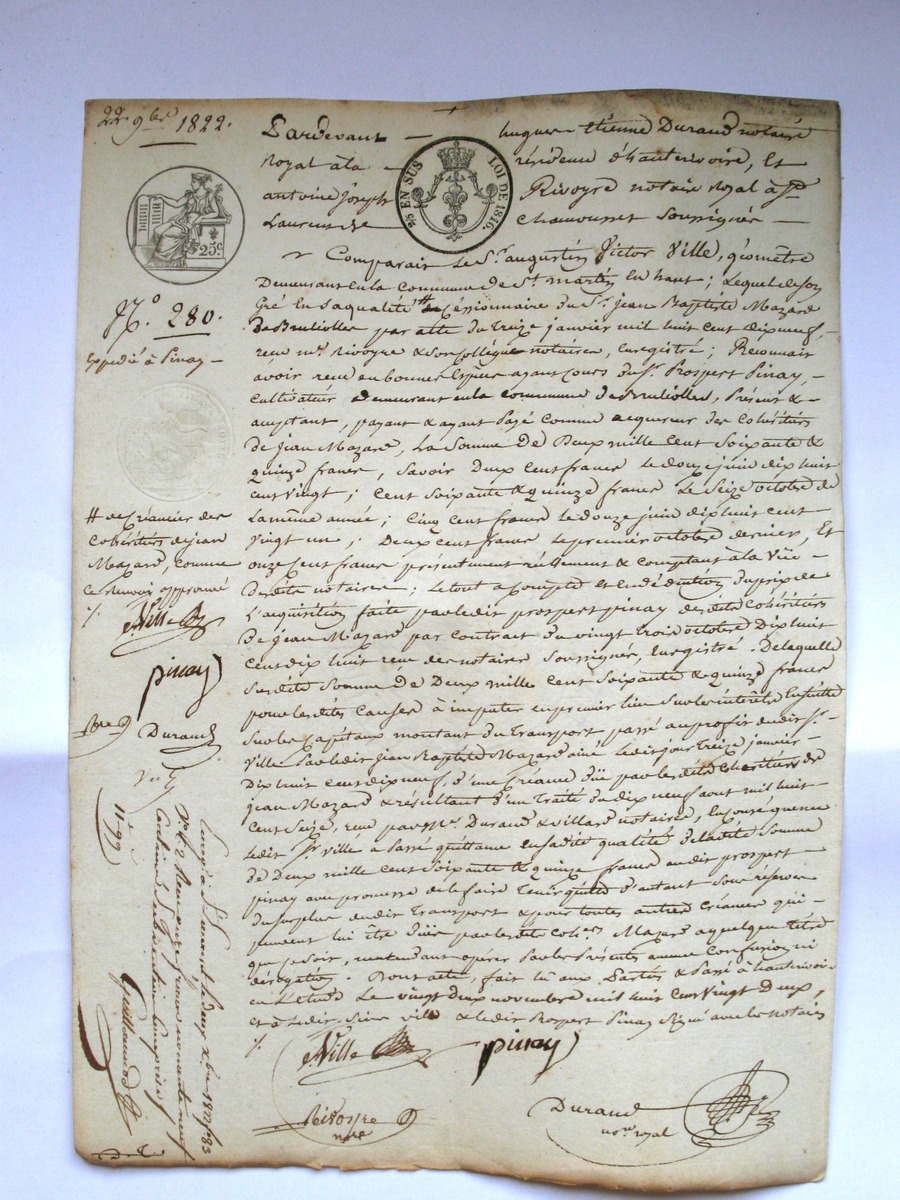 22. 9bre 1822.
Pardevant hugues Etienne Durand notaire
Royal à la résidence d'hauterivoire, Et
antoine Joseph Rivoyre notaire royal à St
Laurent de Chamousset Soussignés
5/10 EN SUS LOI DE 1816.
25c.
Comparait Le Sr. augustin Victor Ville, géomètre
Demeurant en la commune de St. martin En haut ; Lequel de Son
Gré En Sa qualité # de Cessionnaire du Sr. jean Baptiste Mazard
De Brullioles par acte du treize janvier mil huit Cent dix neuf,
recu me. Rivoyre & Son Collègue notaires, Enregistré ; Reconnait
avoir recu en bonnes Espèces ayant Cours du Sr. Prospert Pinay,
Cultivateur Demeurant en la commune de Brullioles, Présent &
acceptant, payant & ayant Payé comme acquereur des Cohéritiers
de jean Mazard, La Somme De Deux mille Cent Soixante &
quinze francs, Savoir Deux Cent francs Le douze juin dix huit
cent vingt ; Cent Soixante & quinze francs Le Seize octobre de
La même année ; Cinq cent francs le douze juin dix huit cent
Vingt un ; Deux cent francs Le premier octobre dernier, Et
onze Cent francs présentement réellement & comptant à la Vüe
Desdits notaires ; Le tout a Compte et En déduction du prix de
L'acquisition faite par ledit prospert pinay desdits Cohéritiers
De Jean Mazard par contrat du vingt trois octobre Dix huit
Cent dix huit recu des notaires Soussignés, Enregistré. De laquelle
Susdite Somme de Deux mille Cent Soixante & quinze francs
pour les dites Causes à imputer en premier lieu Sur les intérêts Ensuite
Sur les Capitaux montant du transport passé au profit dudit Sr.
Ville Par ledit Jean Baptiste Mazard ainé Ledit jour Treize janvier
Dix huit cent dix neuf, d'une Créance düe par lesdits Cohéritiers de
jean Mazard & résultant D'un Traité du dix neuf aout mil huit
Cent Seize, recu par Me. Durand & Villard notaires, En Conséquence
Ledit Sr. Ville à Passé quittance En Sadite qualité de ladite Somme
de Deux mille cent Soixante & quinze francs audit prospert
pinay avec promesse de le faire Tenir quitte D'autant Sous réserves
du Surplus dudit transport & pour toutes autres Créances qui
peuvent lui être düe par lesdits Cohers. Mazard a quelque titre
que ce Soit, n'entendant opérer Par les Présentes aucune Confusion ni
dérogation. Dont acte, fait lû aux Parties & Passé à hauterivoire
en L'étude Le vingt deux novembre mil huit Cent Vingt Deux,
et à Ledit Sieur Ville & ledit Prospert Pinay Signé avec les notaires
Ville
pinay
Rivoyre
nre
Durand
nore royal
No. 280.
Expédié à Pinay
# de Créancier des
Cohéritiers de jean
Mazard, comme
ce renvoi approuvé
Ville
pinay
Durand
Enregistré à St Laurent le deux Xbre 1822 fo 83
Guillaumot